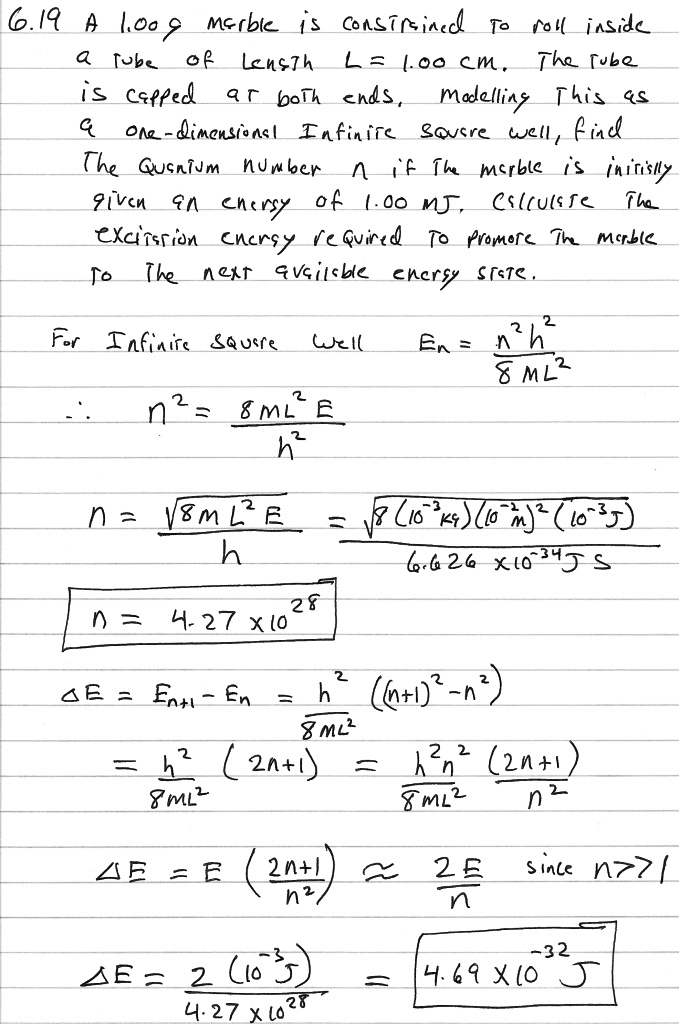 6.19 A 1.00 g marble is constrained to roll inside
a tube of length L = 1.00 cm. The tube
is capped at both ends. Modelling this as
a one-dimensional Infinite square well, find
The Quantum number n if the marble is initially
given an energy of 1.00 mJ. Calculate the
excitation energy required to promote the marble
to the next available energy state.
For Infinite square well En = n²h² / 8mL²
∴ n² = 8mL²E / h²
n = √(8mL²E) / h = √(8(10⁻³kg)(10⁻²m)²(10⁻³J)) / 6.626 x10⁻³⁴J s
n = 4.27 x10²⁸
△E = En+1 - En = h² / 8mL² ((n+1)² - n²)
= h² / 8mL² (2n+1) = h²n² / 8mL² (2n+1) / n²
△E = E (2n+1 / n²) ≈ 2E / n since n>>1
△E = 2(10⁻³J) / 4.27 x10²⁸ = 4.69 x10⁻³² J